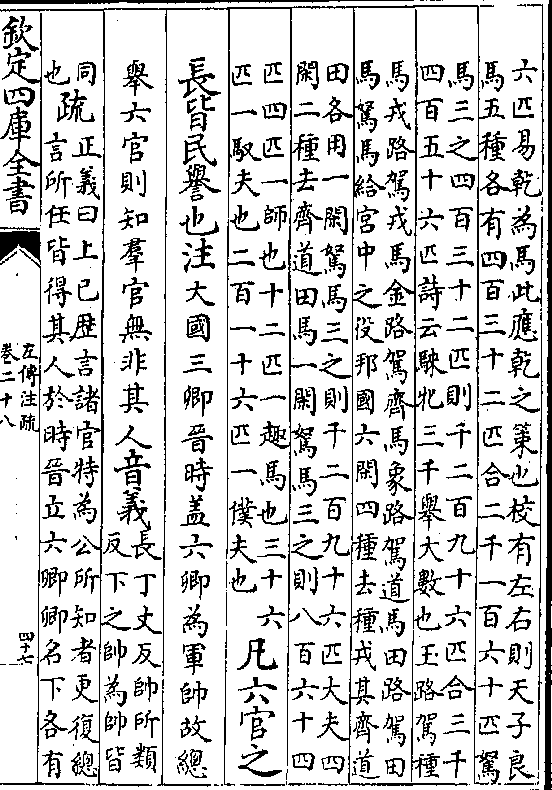 六匹易乾為馬此應乾之策也校有左右則天子良
馬五種各有四百三十二匹合二千一百六十匹駑
馬三之四百三十二匹則千二百九十六匹合三千
四百五十六匹詩云騋牝三千舉大數也玉路駕種
馬戎路駕戎馬金路駕齊馬象路駕道馬田路駕田
馬駑馬給宮中之役邦國六閑四種去種戎其齊道
田各用一閑駑馬三之則千二百九十六匹大夫四
閑二種去齊道田馬一閑駑馬三之則八百六十四
匹四匹一師也十二匹一趣馬也三十六
匹一馭夫也二百一十六匹一僕夫也
凡六官之
長皆民譽也注大國三卿晉時盖六卿為軍帥故總
舉六官則知羣官無非其人音義
長丁丈反帥所類
反下之帥為帥皆
同
疏
正義曰上已歴言諸官特為公所知者更復總
也
言所任皆得其人於時晉立六卿卿名下各有
欽定四庫全書
左傳注疏
卷二十八
四十七